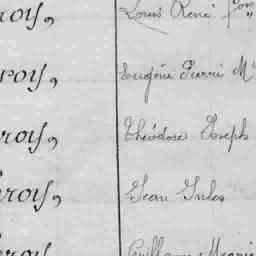 roy, Louis René
roy, Eugène Pierre M
roy, Théodore Joseph
roy, Jean Jules
roy Guillaume Marie